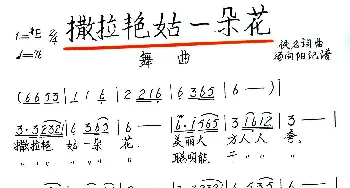 1=♯E 2/4 撒拉艳姑一朵花
舞曲
佚名词曲
杨向阳记谱
(6 6 5 3 | 1 1 6 | 2 · 1 2 | 6 3 6 5 | 6 — )
3 · 3 2 3 2 | 6 3 6 5 | 6 — | 6 · 1 5 3 | 3 1 6 1 2 | 3 —
撒拉艳 姑一朵 花. 美丽大 方人人 夸.
〃〃〃 〃〃〃 〃 聪明能 二〃〃 〃